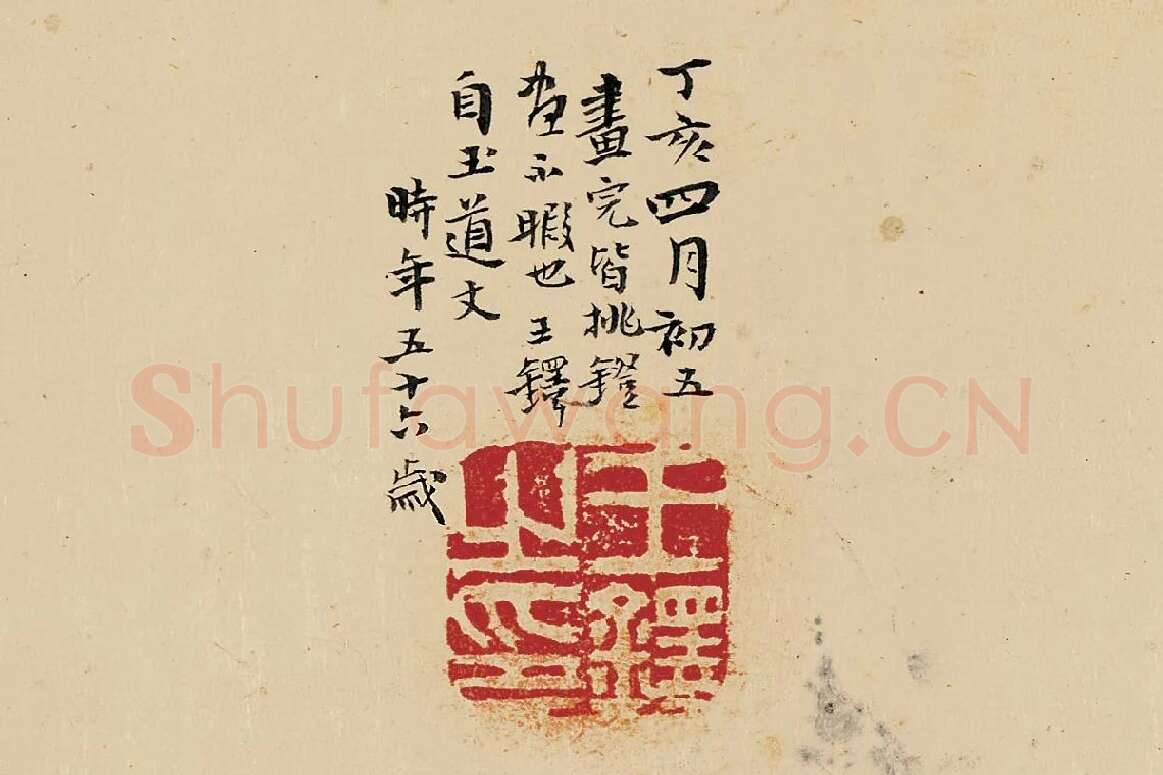 丁亥四月初五
畫完皆挑鐙
不暇也 王鐸
自玉道丈
時年五十六歲
王鐸之印
Shufawang.CN